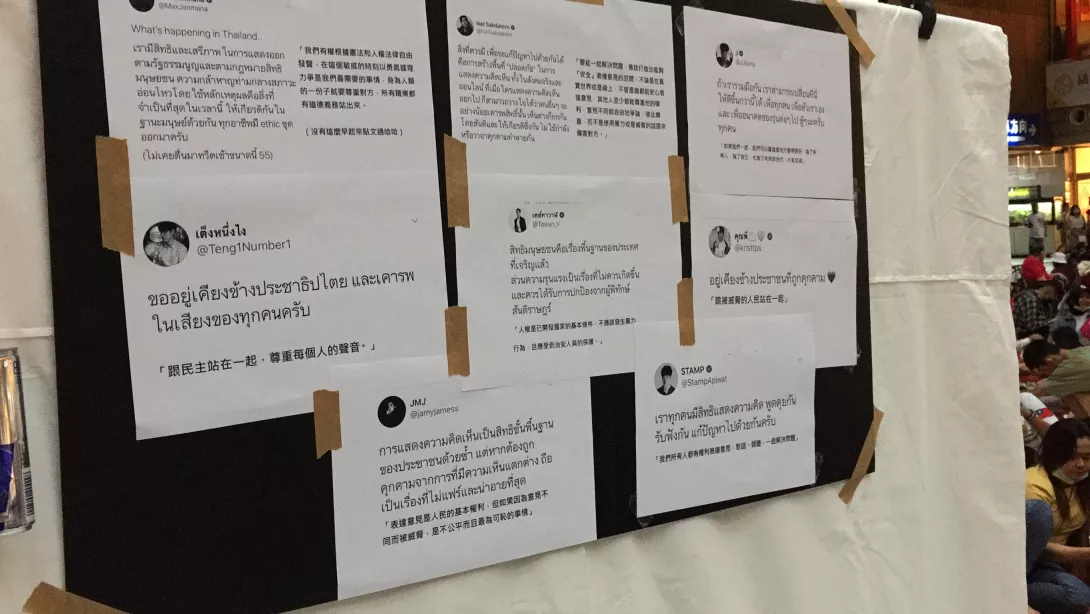 @MaxJenmana
What's happening in Thailand..
เรามีสิทธิและเสรีภาพ ในการแสดงออก
ตามรัฐธรรมนูญและตามกฎหมายสิทธิ
มนุษยชน ความกล้าหาญท่ามกลางสภาวะ
อ่อนไหวโดย ใช้หลักเหตุผลคือสิ่งที่
จำเป็นที่สุดในเวลานี้ ให้เกียรติกันใน
ฐานะมนุษย์ด้วยกัน ทุกอาชีพมี ethic ชุด
ออกมาครับ
(ไม่เคยตื่นมาทวีตเช้าขนาดนี้ 55)
「我們有權根據憲法和人權法律自由
發聲，在這個敏感的時刻以勇氣據理
力爭是我們最需要的事情，身為人類
的一份子就要尊重對方，所有職業都
有道德義務站出來。
（沒有這麼早起來貼文過哈哈）
Nat Sakdatorn
@NATsakdatorn
สิ่งที่ควรมี เพื่อจะแก้ปัญหาไปด้วยกันได้
คือการสร้างพื้นที่ "ปลอดภัย" ในการ
แสดงความคิดเห็น ทั้งในสังคมจริงและ
ออนไลน์ ที่เมื่อใครแสดงความคิดเห็น
ออกไป ก็สามารถวางใจ
「安全」
J
เราสามารถเปลี่ยนให้มี
ให้ดีขึ้นกว่านี้ได้ เพื่อทุกคน เพื่อตัวเราเอง
และเพื่ออนาคตของรุ่นต่อๆ ไป สู้ๆนะครับ
ทุกคน
เต็งหนึ่งไง
@Teng1Number1
ขออยู่เคียงข้างประชาธิปไตย และเคารพ
ในเสียงของทุกคนครับ
「跟民主站在一起，尊重每個人的聲音。」
เตชัทวาวัฬ
@Tawan_V
สิทธิมนุษยชนคือเรื่องพื้นฐานของประเทศ
ที่เจริญแล้ว
ส่วนความรุนแรงเป็นเรื่องที่ไม่ควรเกิดขึ้น
และควรได้รับการปกป้องจากผู้พิทักษ์
สันติราษฎร์
「人權是已開發國家的基本條件，不應該發生暴力
行為，且應受到治安人員的保護。」
คุณพี
@kristtps
อยู่เคียงข้างประชาชนที่ถูกคุกคาม 🖤
「跟被威脅的人民站在一起」
JMJ
@jamyjamess
การแสดงความคิดเห็นเป็นสิทธิขั้นพื้นฐาน
ของประชาชนด้วยซ้ำ แต่หากต้องถูก
คุกคามจากการที่มีความเห็นแตกต่าง ถือ
เป็นเรื่องที่ไม่แฟร์และน่าอายที่สุด
「表達意見是人民的基本權利，但如果因為意見不
同而被威脅，是不公平而且最為可恥的事情」
STAMP
@StampApiwat
เราทุกคนมีสิทธิแสดงความคิด พูดคุยกัน
รับฟังกัน แก้ปัญหาไปด้วยกันครับ
「我們所有人都有權利表達意見、對話、傾聽、一起解決問題」